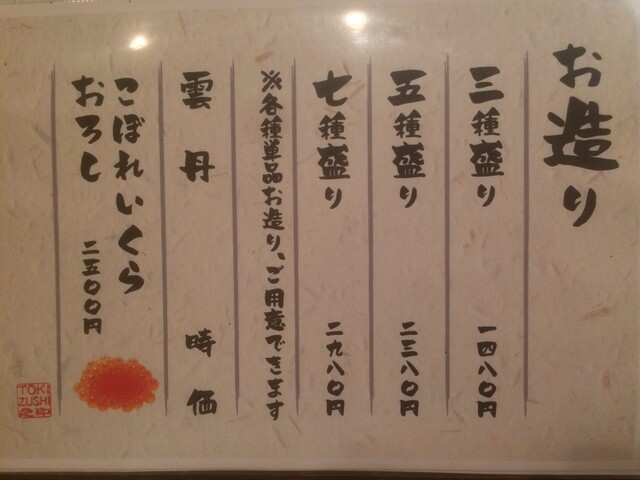 お造り
三種盛り 一四八〇円
五種盛り 二三八〇円
七種盛り 二九八〇円
※各種単品お造り、ご用意できます
雲丹 時価
こぼれいくら
おろし 二五〇〇円
TOKI
ZUSHI
之印